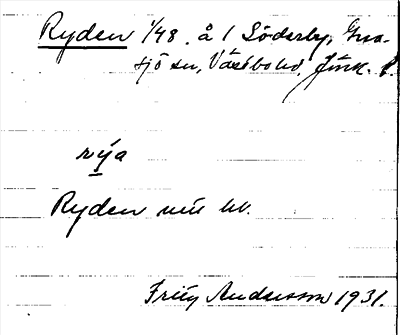 Ryden 1/48. å 1 Söderby, Gna-
sjö sn, Västbo hd, Jönk. l.
rýa
Ryden nu hv.
Fritz Andersson 1931.